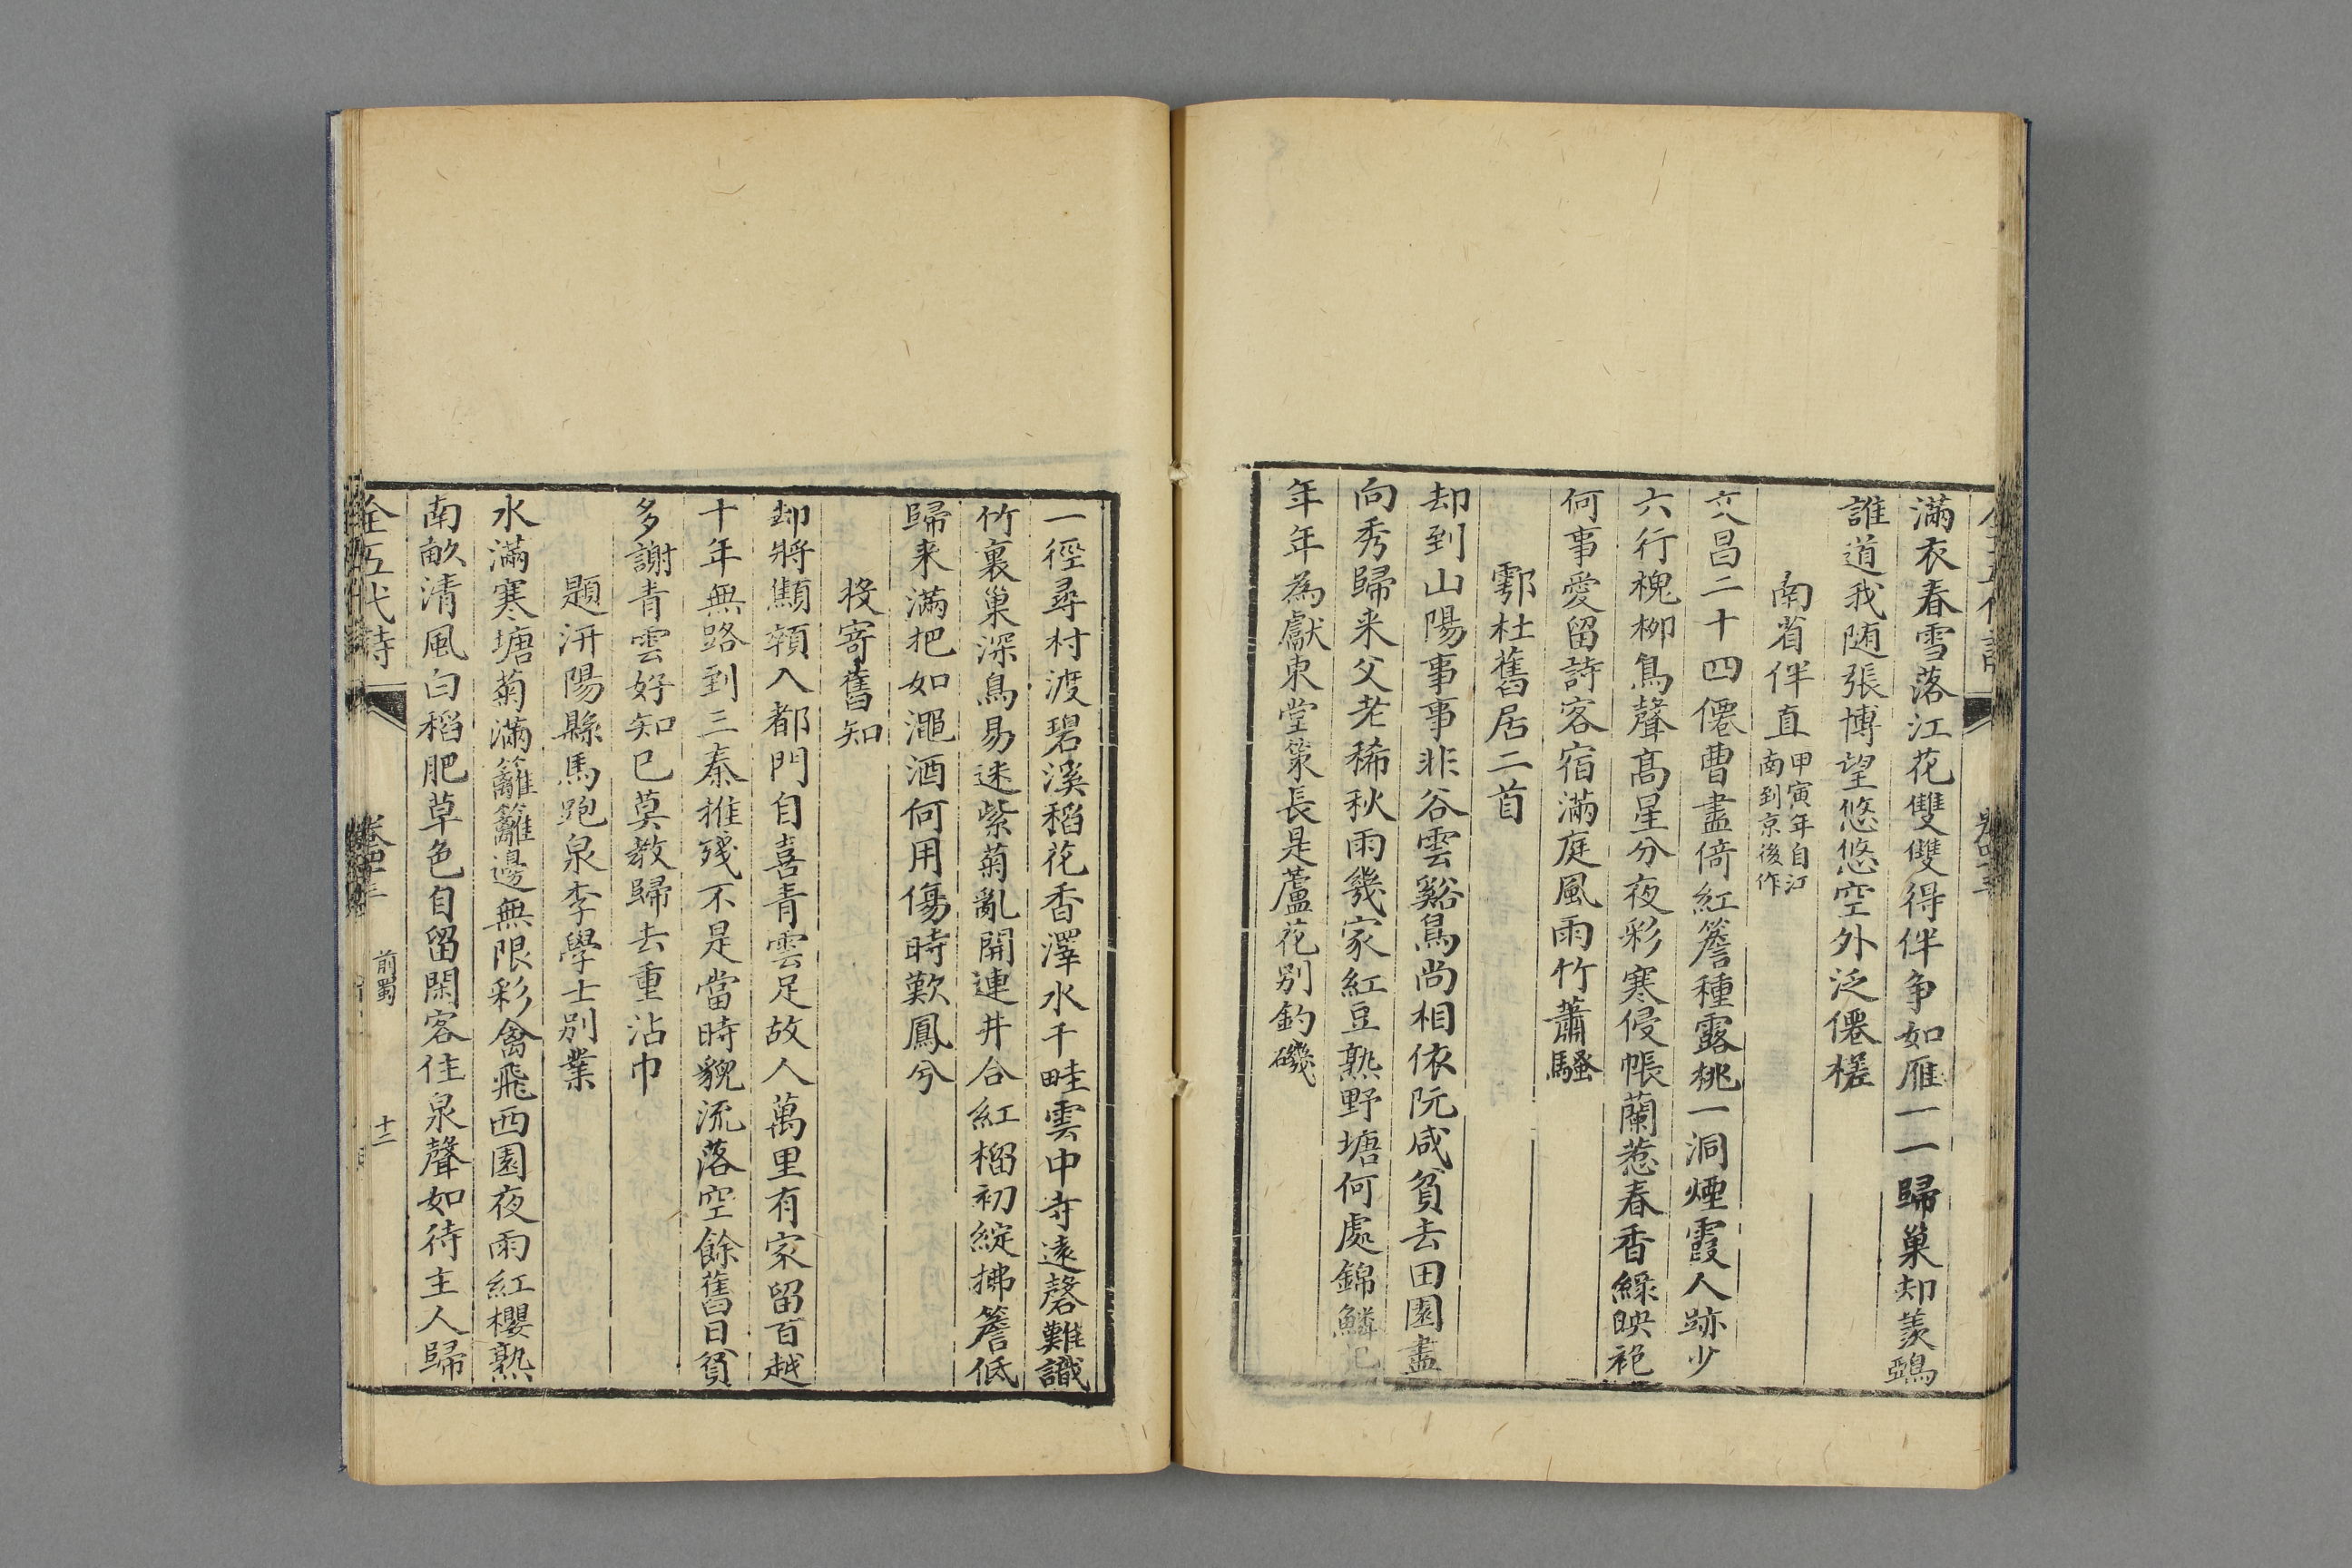 滿衣春雪落江花雙雙得伴争如雁一一歸巢却羨鵶
誰道我随張博望悠悠空外泛僊槎
南省伴直甲寅年自江南到京後作
文昌二十四僊曹盡倚紅簷種露桃一洞煙霞人跡少
六行槐栁鳥聲髙星分夜彩寒侵帳蘭惹春香緑映袍
何事愛留詩客宿滿庭風雨竹蕭騷
鄠杜舊居二首
却到山陽事事非谷雲谿鳥尚相依阮咸貧去田園盡
向秀歸来父老稀秋雨幾家紅豆熟野塘何處錦鱗肥
年年為獻東堂策長是蘆花别釣磯
一徑尋村渡碧溪稻花香澤水千畦雲中寺遠磬難識
竹裏巢深鳥易迷紫菊亂開連井合紅榴初綻拂簷低
歸来满把如澠酒何用傷時歎鳳兮
投寄舊知
却將顦顇入都門自喜青雲足故人萬里有家留百越
十年無路到三秦摧殘不是當時貌流落空餘舊日貧
多謝青雲好知已莫教歸去重沾巾
題汧陽縣馬跑泉李學士别業
水滿寒塘菊滿籬籬邊無限彩禽飛西園夜雨紅櫻熟
南畝清風白稻肥草色自留閑客住泉聲如待主人歸
全五代詩
前蜀
十二